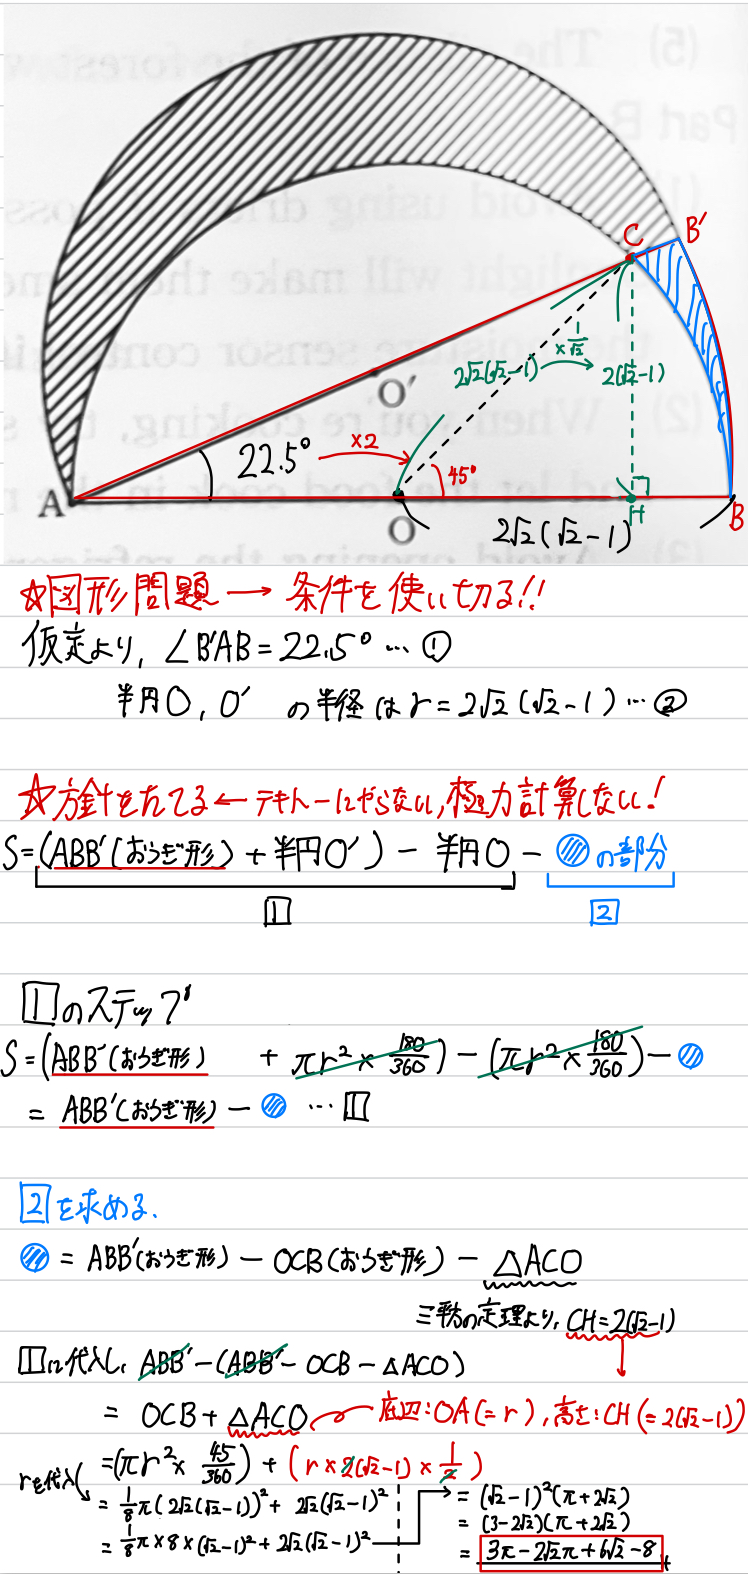 C
B′
2√2(√2−1)
×1/√2
2(√2−1)
O′
22.5°
×2
45°
A
O
H
B
2√2(√2−1)
☆図形問題→条件を使い切る!!
仮定より, ∠B′AB=22.5°…①
半円O, O′ の半径はr=2√2(√2−1)…②
☆方針をたてる←テキトーにやらない, 極力計算しない!
S=(ABB′(おうぎ形)+半円O′)−半円O−の部分
1
2
1のステップ
S=(ABB′(おうぎ形) + πr²×180/360)−(πr²×180/360)−
= ABB′(おうぎ形)− …1
2を求める.
= ABB′(おうぎ形)−OCB(おうぎ形)−△ACO
三平方の定理より, CH=2(√2−1)
1に代入し, ABB′−(ABB′−OCB−△ACO)
= OCB+△ACO 底辺:OA(=r), 高さ:CH(=2(√2−1))
=(πr²×45/360)+(r×2(√2−1)×1/2)
rを代入
=1/8π(2√2(√2−1))²+2√2(√2−1)²
=1/8π×8×(√2−1)²+2√2(√2−1)²
=(√2−1)²(π+2√2)
=(3−2√2)(π+2√2)
=3π−2√2π+6√2−8